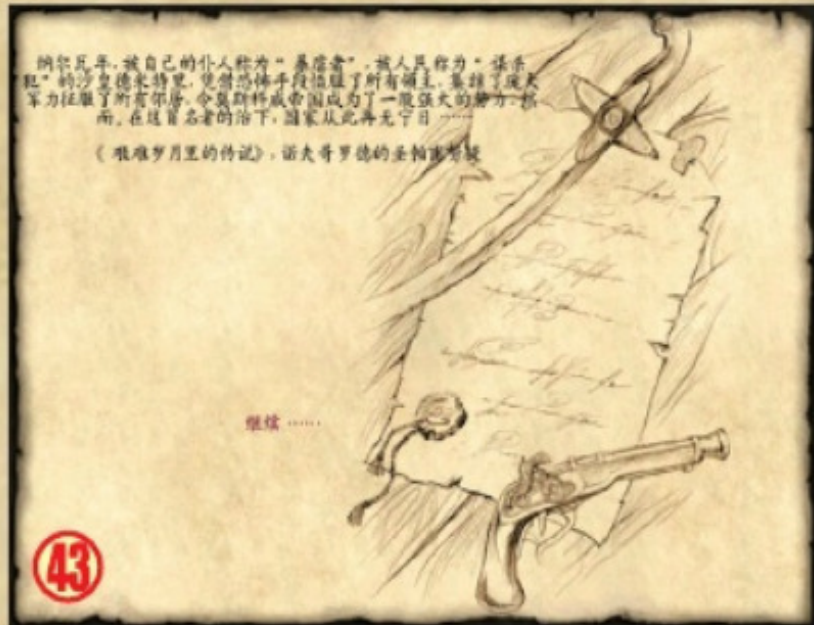 纳尔瓦年，被自己的仆人称为“暴虐者”，被人民称为“谋杀
犯”的沙皇德米特里，凭借恐怖手段慑服了所有领主，集结了庞大
军力征服了所有邻居，令莫斯科威帝国成为了一股强大的势力，然
而，在这冒名者的治下，国家从此再无宁日……
《艰难岁月里的传说》，诺夫哥罗德的圣帕
继续……
43